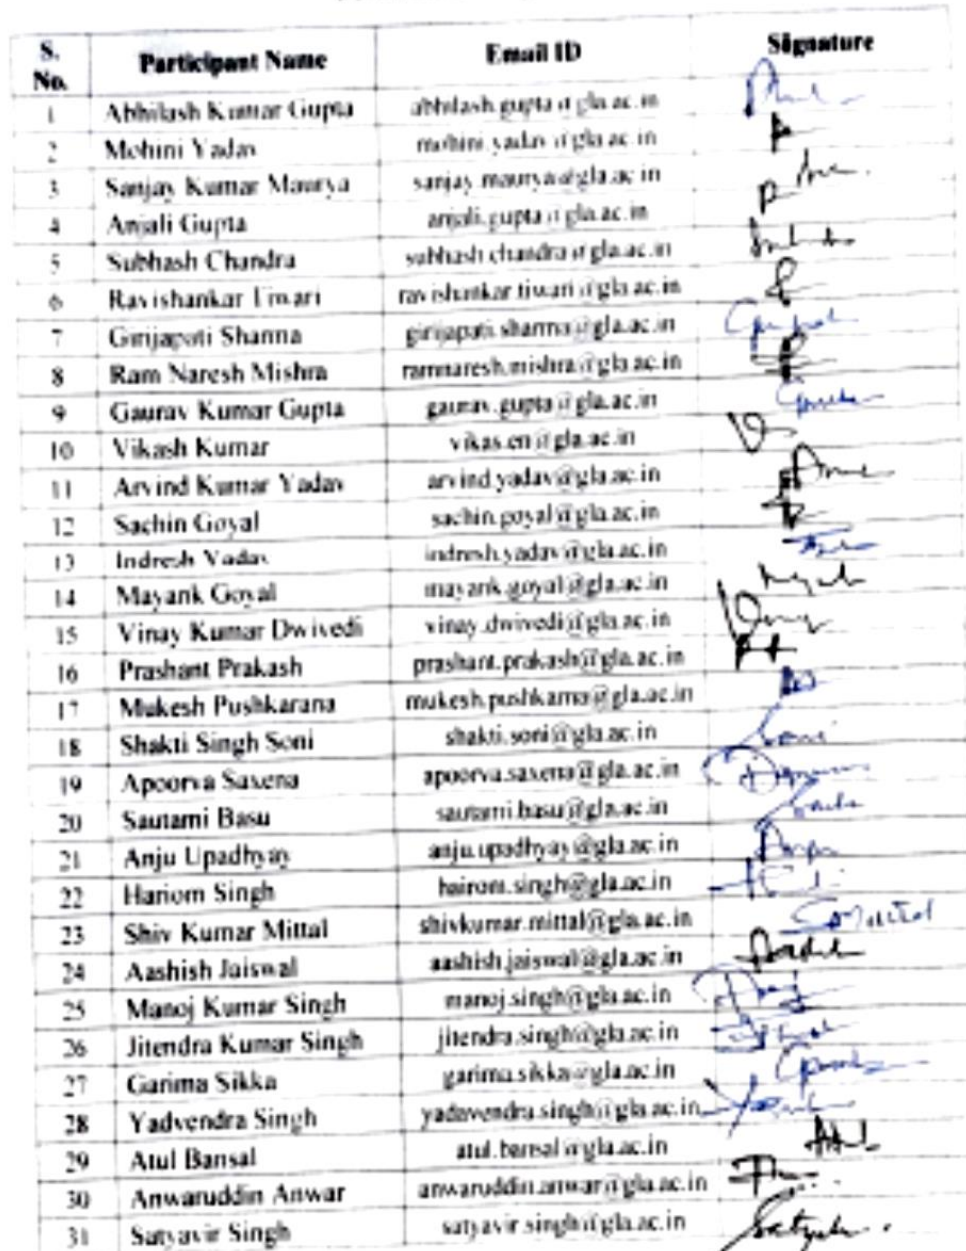 S. No. Participant Name Email ID Signature
1 Abhilash Kumar Gupta abhilash.gupta@gla.ac.in
2 Mohini Yadav mohini.yadav@gla.ac.in
3 Sanjay Kumar Maurya sanjay.maurya@gla.ac.in
4 Anjali Gupta anjali.gupta@gla.ac.in
5 Subhash Chandra subhash.chandra@gla.ac.in
6 Ravishankar Tiwari ravishankar.tiwari@gla.ac.in
7 Girijapati Sharma girijapati.sharma@gla.ac.in
8 Ram Naresh Mishra ramnaresh.mishra@gla.ac.in
9 Gaurav Kumar Gupta gaurav.gupta@gla.ac.in
10 Vikash Kumar vikas.en@gla.ac.in
11 Arvind Kumar Yadav arvind.yadav@gla.ac.in
12 Sachin Goyal sachin.goyal@gla.ac.in
13 Indresh Yadav indresh.yadav@gla.ac.in
14 Mayank Goyal mayank.goyal@gla.ac.in
15 Vinay Kumar Dwivedi vinay.dwivedi@gla.ac.in
16 Prashant Prakash prashant.prakash@gla.ac.in
17 Mukesh Pushkarana mukesh.pushkarna@gla.ac.in
18 Shakti Singh Soni shakti.soni@gla.ac.in Soni
19 Apoorva Saxena apoorva.saxena@gla.ac.in
20 Sautami Basu sautami.basu@gla.ac.in
21 Anju Upadhyay anju.upadhyay@gla.ac.in
22 Hariom Singh hairom.singh@gla.ac.in
23 Shiv Kumar Mittal shivkumar.mittal@gla.ac.in
24 Aashish Jaiswal aashish.jaiswal@gla.ac.in
25 Manoj Kumar Singh manoj.singh@gla.ac.in
26 Jitendra Kumar Singh jitendra.singh@gla.ac.in
27 Garima Sikka garima.sikka@gla.ac.in
28 Yadvendra Singh yadavendra.singh@gla.ac.in
29 Atul Bansal atul.bansal@gla.ac.in
30 Anwaruddin Anwar anwaruddin.anwar@gla.ac.in
31 Satyavir Singh satyavir.singh@gla.ac.in